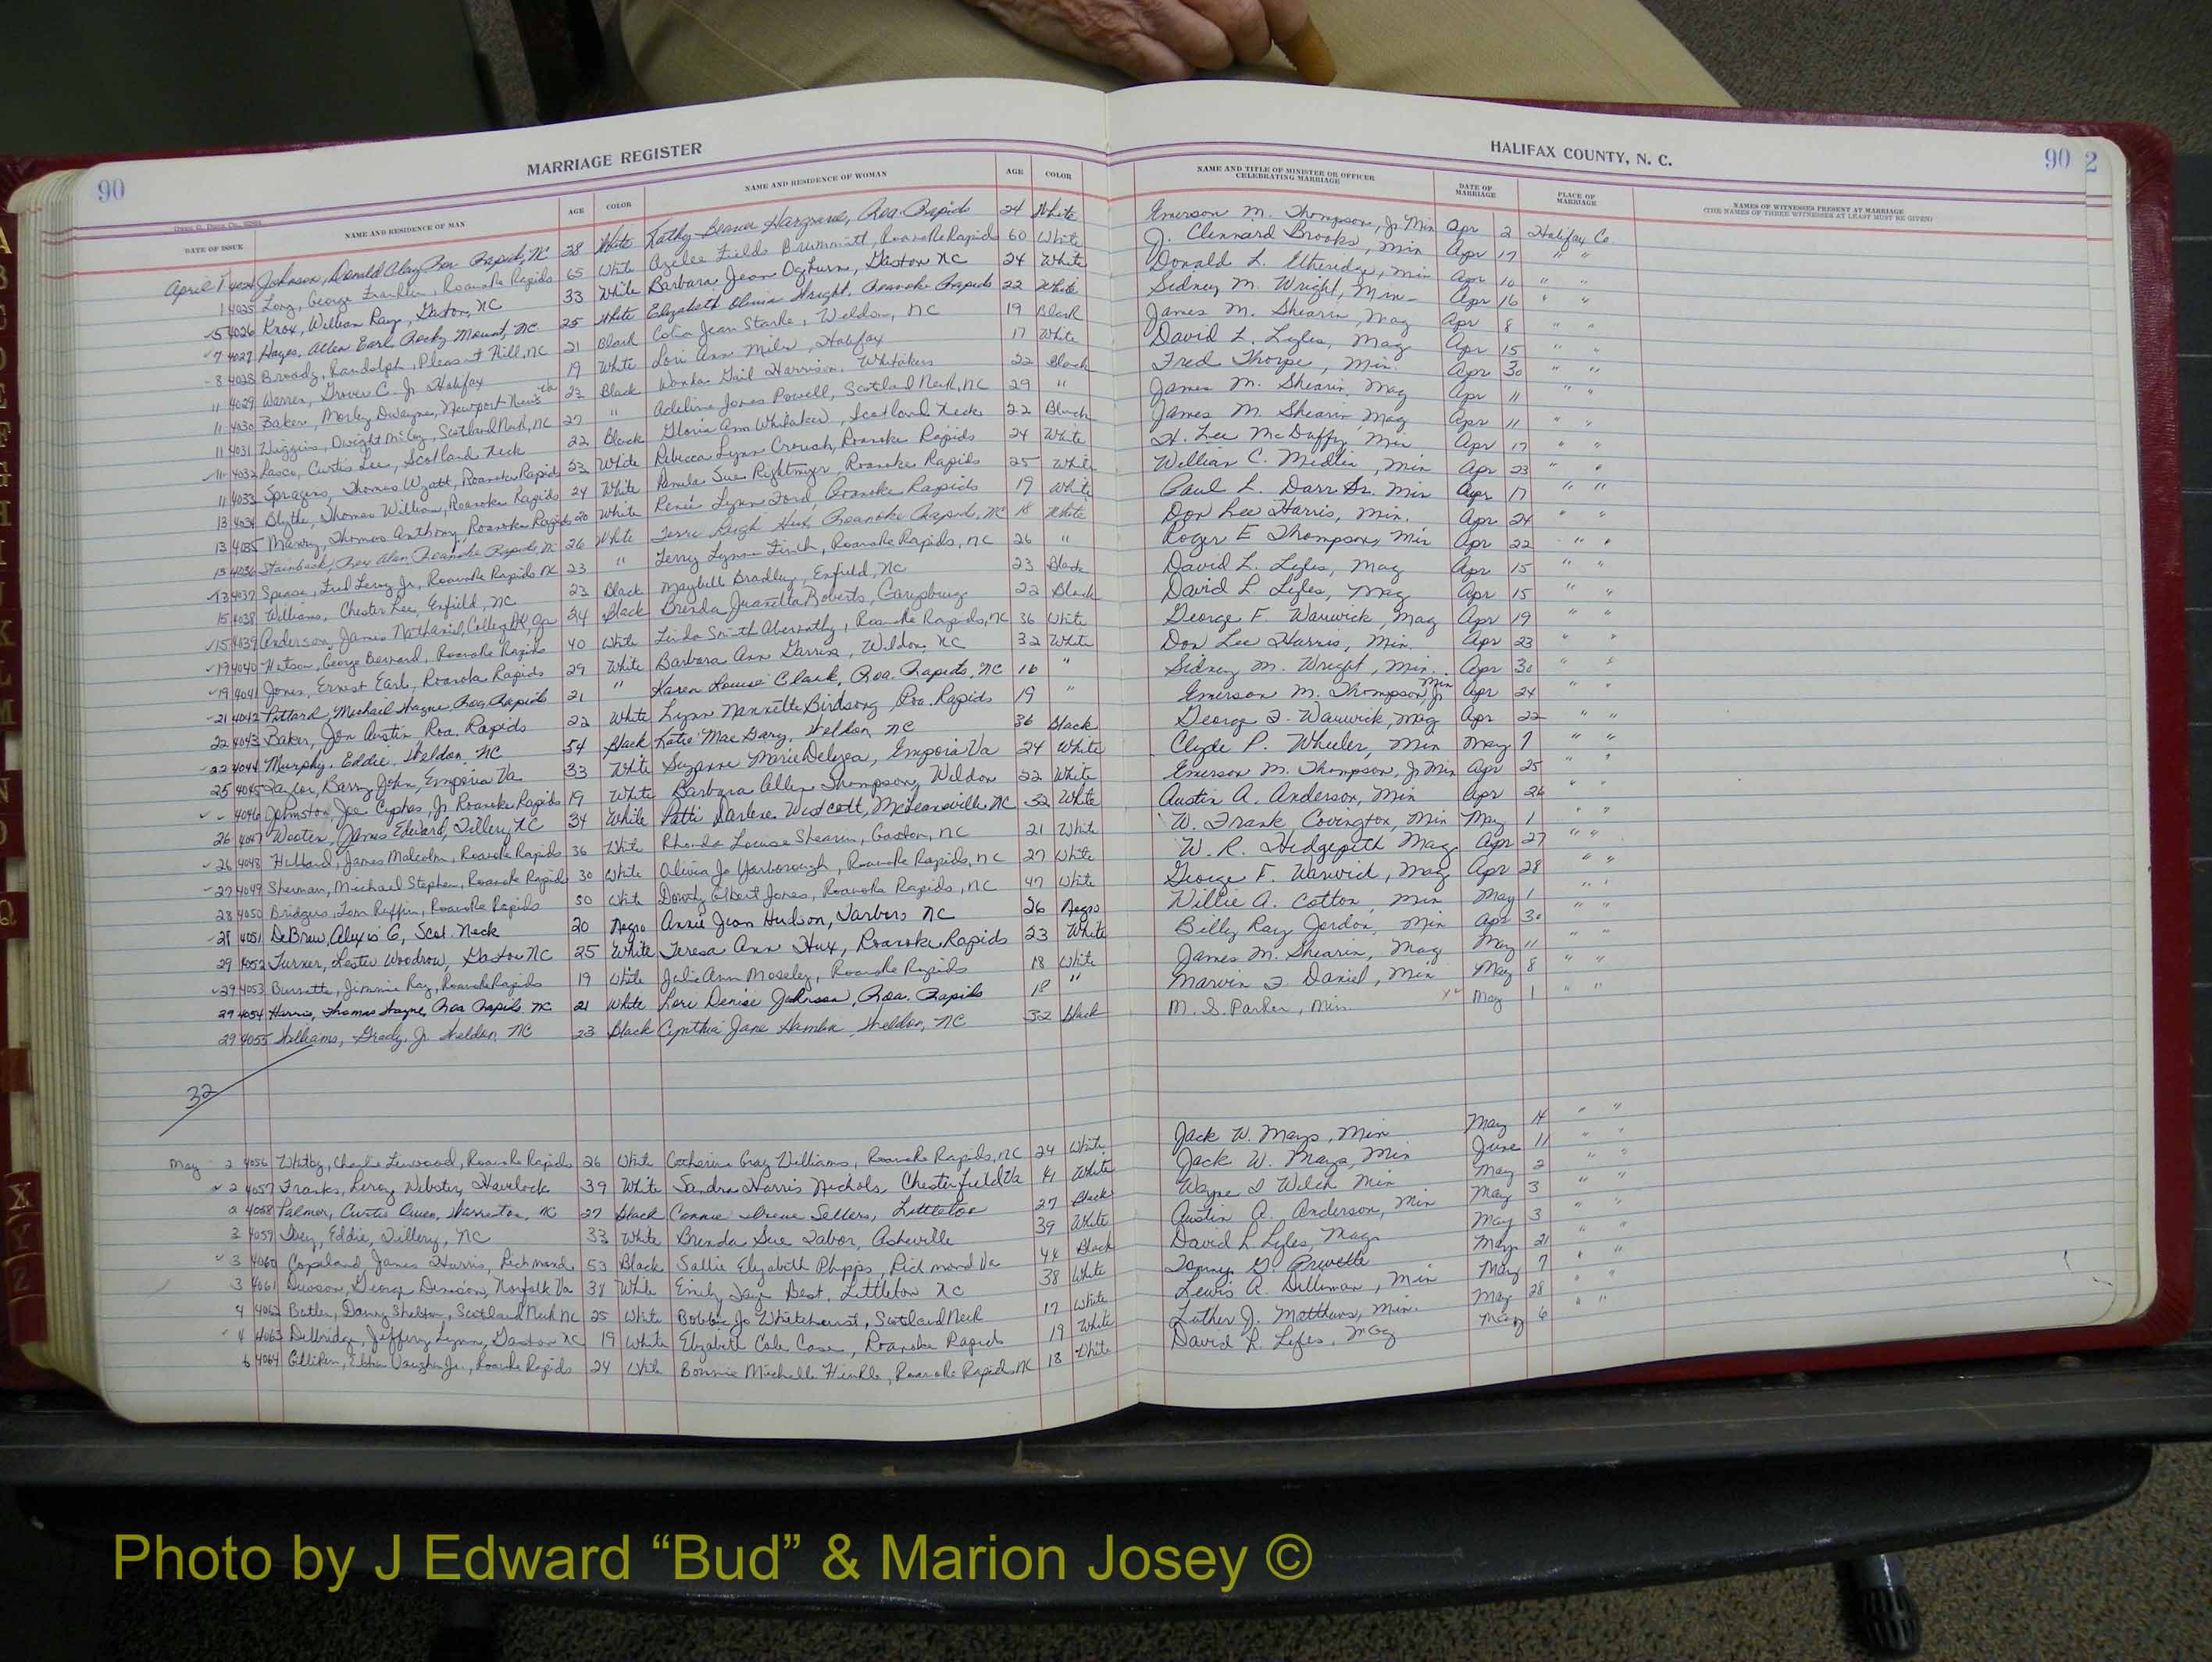 MARRIAGE REGISTER
HALIFAX COUNTY, N. C.
90
90 2
DATE OF ISSUE NAME AND RESIDENCE OF MAN AGE COLOR NAME AND RESIDENCE OF WOMAN AGE COLOR NAME AND TITLE OF MINISTER OR OFFICER CELEBRATING MARRIAGE DATE OF MARRIAGE PLACE OF MARRIAGE NAMES OF WITNESSES PRESENT AT MARRIAGE (THE NAMES OF THREE WITNESSES AT LEAST MUST BE GIVEN)
April 1 4024 Johnson, Donald Clay Roa. Rapids, NC 28 White Kathy Hargrave, Roa. Rapids 24 White Emerson M. Thompson, Jr Min Apr 2 Halifax Co.
1 4025 Long, George Franklin, Roanoke Rapids 65 White Azelee Fields Brummitt, Roanoke Rapids 60 White J. Clennard Brooks, Min Apr 17 " "
5 4026 Knox, William Ray, Gaston, NC 33 White Barbara Jean Ogburn, Gaston NC 24 White Donald L. Etheridge, Min Apr 10 " "
7 4027 Hayes, Allen Earl Rocky Mount, NC 25 White Elizabeth Olivia Wright, Roanoke Rapids 22 White Sidney M. Wright, Min Apr 16 " "
8 4028 Broady, Randolph, Pleasant Hill, NC 21 Black Jean Starke, Weldon, NC 19 Black James M. Shearin, Mag Apr 8 " "
11 4029 Warren, Grover C. Jr Halifax 19 White Lori Ann Miles, Halifax 17 White David L. Lyles, Mag Apr 15 " "
11 4030 Baker, Morley Dwayne, Newport News Va 23 Black Wanda Gail Harrison, Whitakers 22 Black Fred Thorpe, Min. Apr 30 " "
11 4031 Wiggins, Dwight McCoy, Scotland Neck, NC 27 " Adeline Jones Powell, Scotland Neck, NC 29 " James M. Shearin, Mag Apr 11 " "
11 4032 Curtis Lee, Scotland Neck 22 Black Gloria Ann Whitaker, Scotland Neck 22 Black James M. Shearin Mag Apr 11 " "
11 4033 Spragins, Thomas Wyatt, Roanoke Rapids 23 White Rebecca Lynn Crouch, Roanoke Rapids 24 White H. Lee McDuffy, Min Apr 17 " "
13 4034 Blythe, Thomas William, Roanoke Rapids 24 White Pamela Sue Rightmyer, Roanoke Rapids 25 White William C. Medlin, Min Apr 23 " "
13 4035 Manry, Thomas Anthony, Roanoke Rapids 20 White Renée Lynn Ford, Roanoke Rapids 19 White Paul L. Darr Sr. Min Apr 17 " "
13 4036 Stainback, Rex Alan, Roanoke Rapids NC 26 White Terri Leigh Hux, Roanoke Rapids, NC 18 White Don Lee Harris, Min. Apr 24 " "
13 4037 Spence, Fred Leroy Jr., Roanoke Rapids NC 23 " Terry Lynne Finch, Roanoke Rapids, NC 26 " Roger E Thompson, Min Apr 22 " "
15 4038 Williams, Chester Lee, Enfield, NC 23 Black Maybell Bradley, Enfield, NC 23 Black David L. Lyles, Mag Apr 15 " "
15 4039 Anderson, James Nathaniel, College Pk, Ga 24 Black Brenda Juanella Roberts, Garysburg 22 Black David L Lyles, Mag Apr 15 " "
19 4040 George Bernard, Roanoke Rapids 40 White Linda Smith Abernathy, Roanoke Rapids, NC 36 White George F. Warwick, Mag Apr 19 " "
19 4041 Jones, Ernest Earl, Roanoke Rapids 29 White Barbara Ann Garris, Weldon, NC 32 White Don Lee Harris, Min. Apr 23 " "
21 4042 Pittard, Michael Wayne, Roa. Rapids 21 " Karen Louise Clark, Roa. Rapids, NC 16 " Sidney M. Wright, Min. Apr 30 " "
22 4043 Baker, Jon Austin Roa. Rapids 22 White Lynn Nannette Birdsong Roa. Rapids 19 " Emerson M. Thompson, Jr Min Apr 24 " "
22 4044 Murphy, Eddie, Weldon, NC 54 Black Katie Mae Gary, Weldon, NC 36 Black George F. Warwick, Mag Apr 22 " "
25 4045 Taylor, Barry John, Emporia Va 33 White Suzanne Marie, Emporia Va 24 White Clyde P. Wheeler, Min May 7 " "
4046 Johnston, Joe Cyphas, Jr Roanoke Rapids 19 White Barbara Allen Thompson, Weldon 22 White Emerson M. Thompson, Jr Min Apr 25 " "
26 4047 Wooten, James Edward, Tillery, NC 34 White Patti Darlene Westcott, McLeansville NC 32 White Austin A. Anderson, Min Apr 26 " "
26 4048 James Malcolm, Roanoke Rapids 36 White Rhonda Louise Shearin, Gaston, NC 21 White W. Frank Covington, Min May 1 " "
27 4049 Sherman, Michael Stephen, Roanoke Rapids 30 White Olivia Jo Yarborough, Roanoke Rapids, NC 27 White W. R. Hedgepeth Mag Apr 27 " "
28 4050 Bridgers, Tom Ruffin, Roanoke Rapids 50 White Elbert Jones, Roanoke Rapids, NC 47 White George F. Warwick, Mag Apr 28 " "
28 4051 DeBrew, Alexis G, Scot. Neck 20 Negro Annie Jean Hudson, Tarboro NC 26 Negro Willie A. Cotton, Min May 1 " "
29 4052 Turner, Lester Woodrow, Gaston NC 25 White Teresa Ann Hux, Roanoke Rapids 23 White Billy Ray Jordon, Min Apr 30 " "
29 4053 Burnette, Jimmie Ray, Roanoke Rapids 19 White Julie Ann Moseley, Roanoke Rapids 18 White James M. Shearin, Mag May 11 " "
29 4054 Harris, Thomas Wayne, Roa. Rapids NC 21 White Lori Denise Johnson, Roa. Rapids 18 " Marvin T. Daniel, Min May 8 " "
29 4055 Williams, Grady Jr Weldon, NC 23 Black Cynthia Jane, Weldon, NC 32 Black M. S. Parker, Min. May 1 " "
32
May 2 4056 Whitby, Charlie Linwood, Roanoke Rapids 26 White Catherine Gray Williams, Roanoke Rapids, NC 24 White Jack W. Mays, Min May 14 " "
2 4057 Franks, Leroy Webster, Havelock 39 White Sandra Harris Nichols, Chesterfield Va 41 White Jack W. Mays, Min June 11 " "
2 4058 Palmer, Curtis Owen, Warrenton, NC 27 Black Connie Irene Sellers, Littleton 27 Black Wayne D Welch Min May 2 " "
3 4059 Ivey, Eddie, Tillery, NC 33 White Brenda Sue Tabor, Asheville 39 White Austin A. Anderson, Min May 3 " "
3 4060 Copeland, James Harris, Richmond 53 Black Sallie Elizabeth Phipps, Richmond Va 44 Black David L Lyles, Mag May 3 " "
3 4061 Dawson, George Denison, Norfolk Va 38 White Emily Best, Littleton NC 38 White Tommy G. Privette May 21 " "
4 4062 Butler, Danny Shelton, Scotland Neck NC 25 White Bobbie Jo Whitehurst, Scotland Neck 17 White Lewis A. Dilliman, Min May 7 " "
4 4063 Delbridge, Jeffery Lynn, Gaston NC 19 White Elizabeth Cole, Roanoke Rapids 19 White Luther J. Matthews, Min. May 28 " "
6 4064 Gillikin, Elton Vaughn Jr., Roanoke Rapids 24 White Bonnie Michelle Hinkle, Roanoke Rapids NC 18 White David L. Lyles, Mag May 6 " "
Photo by J Edward “Bud” & Marion Josey ©